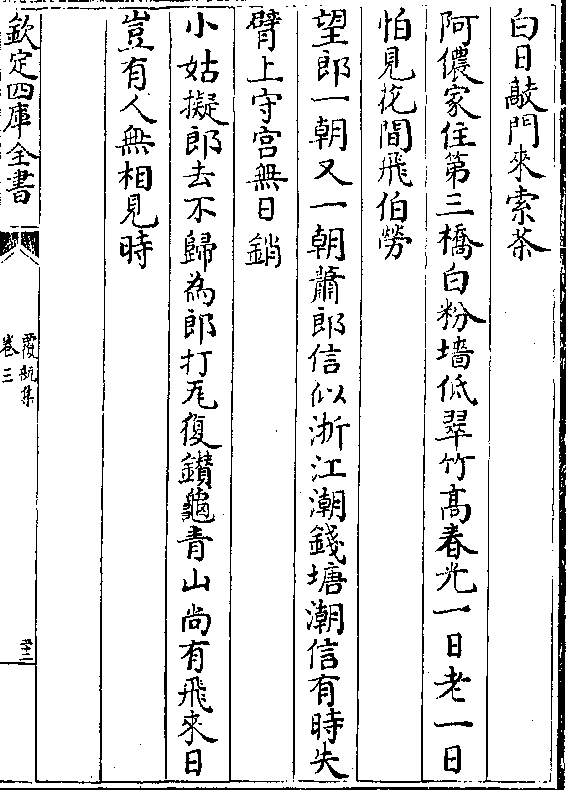 白日敲門來索茶
阿儂家住第三橋白粉墻低翠竹髙春光一日老一日
怕見花間飛伯勞
望郎一朝又一朝蕭郎信似浙江潮錢塘潮信有時失
臂上守宫無日銷
小姑擬郎去不歸為郎打瓦復鑚龜青山尚有飛來日
豈有人無相見時
欽定四庫全書
覆瓿集
卷三